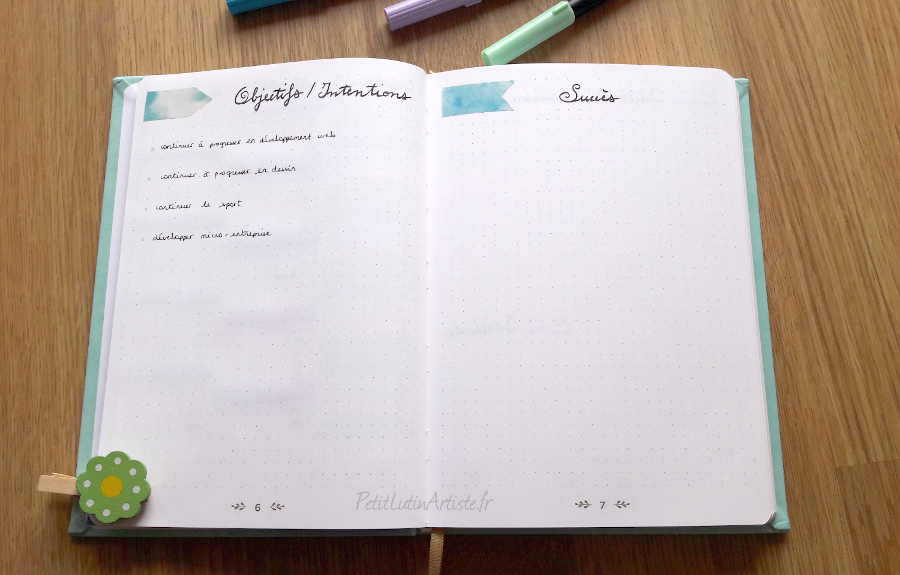 Objectifs / Intentions
continuer à progresser en développement web
continuer à progresser en dessin
continuer le sport
développer micro-entreprise
6
Succès
7
PetitLutinArtiste.fr